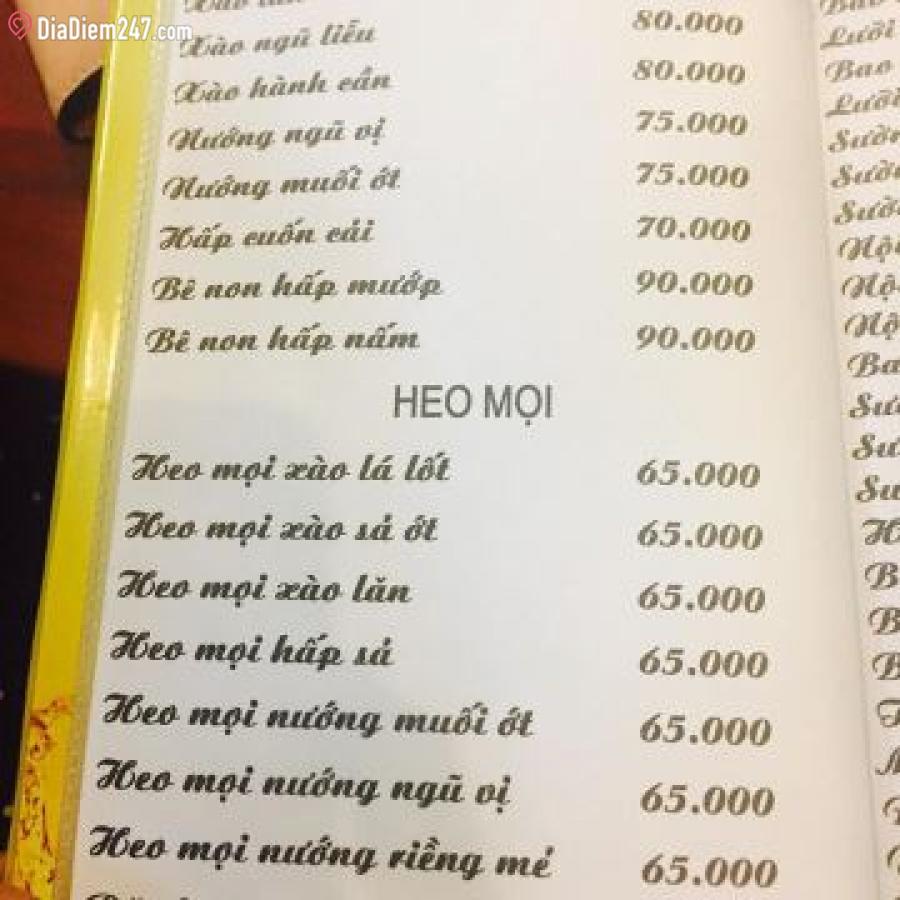 DiaDiem247.com
Xào
Xào ngũ liễu 80.000
Xào hành cần 80.000
Nướng ngũ vị 75.000
Nướng muối ớt 75.000
Hấp cuốn cải 70.000
Bê non hấp mướp 90.000
Bê non hấp nấm 90.000
HEO MỌI
Heo mọi xào lá lốt 65.000
Heo mọi xào sả ớt 65.000
Heo mọi xào lăn 65.000
Heo mọi hấp sả 65.000
Heo mọi nướng muối ớt 65.000
Heo mọi nướng ngũ vị 65.000
Heo mọi nướng riềng mẻ 65.000
Lưỡi
Bao